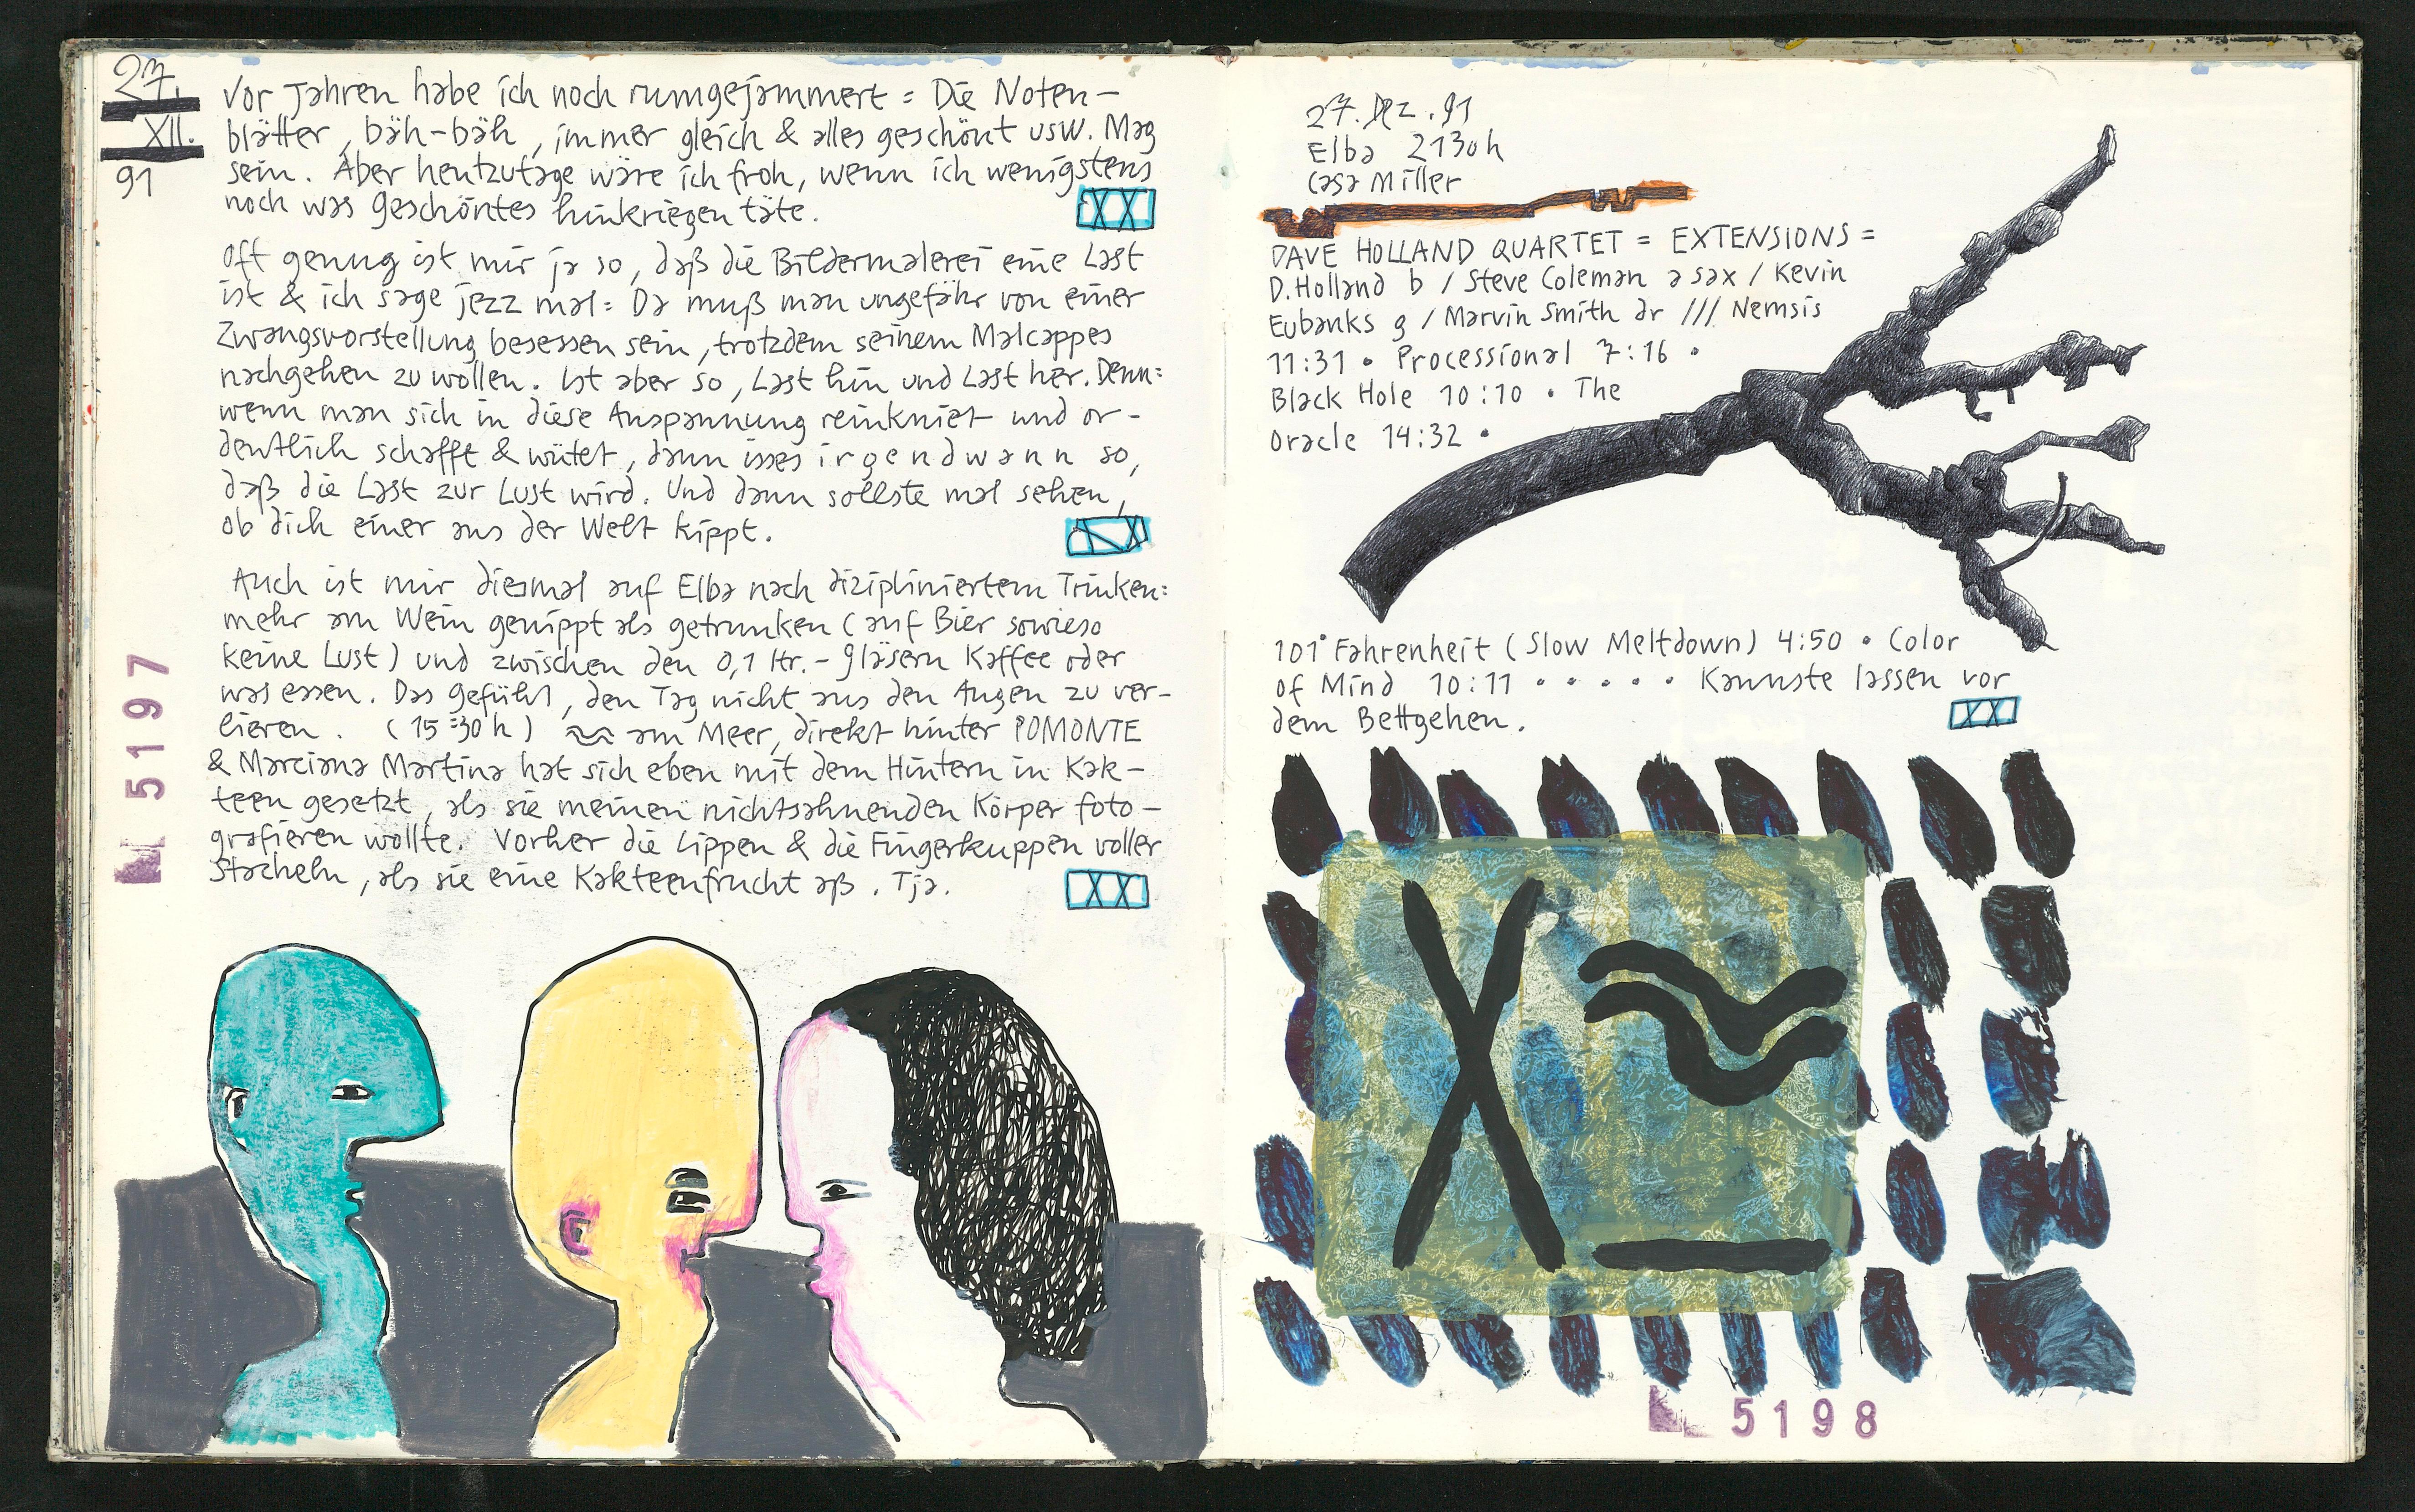 27.
XII.
91
Vor Jahren habe ich noch rumgejammert = Die Noten-
blätter, bäh-bäh, immer gleich & alles geschönt usw. Mag
sein. Aber heutzutage wäre ich froh, wenn ich wenigstens
noch was Geschöntes hinkriegen täte.
XX
Oft genug ist mir ja so, daß die Bildermalerei eine Last
ist & ich sage jezz mal: Da muß man ungefähr von einer
Zwangsvorstellung besessen sein, trotzdem seinem Malcappes
nachgehen zu wollen. Ist aber so, Last hin und Last her. Denn:
wenn man sich in diese Anspannung reinkniet und or-
dentlich schafft & wütet, dann isses irgendwann so,
daß die Last zur Lust wird. Und dann sollste mal sehen,
ob dich einer aus der Welt kippt.
Auch ist mir diesmal auf Elba nach diszipliniertem Trinken:
mehr am Wein genippt als getrunken (auf Bier sowieso
keine Lust) und zwischen den 0,1 ltr.-Gläsern Kaffee oder
was essen. Das Gefühl, den Tag nicht aus den Augen zu ver-
lieren. (15:30 h) ≈ am Meer, direkt hinter POMONTE
& Marciana Martina hat sich eben mit dem Hintern in Kak-
teen gesetzt, als sie meinen nichtsahnenden Körper foto-
grafieren wollte. Vorher die Lippen & die Fingerkuppen voller
Stacheln, als sie eine Kakteenfrucht aß. Tja.
XX
5197
27. Dez. 91
Elba 2130h
Casa Miller
DAVE HOLLAND QUARTET = EXTENSIONS =
D. Holland b / Steve Coleman a sax / Kevin
Eubanks g / Marvin Smith dr /// Nemsis
11:31 • Processional 7:16 •
Black Hole 10:10 • The
Oracle 14:32 •
101° Fahrenheit (Slow Meltdown) 4:50 • Color
of Mind 10:11 • • • • • Kannste lassen vor
dem Bettgehen.
XX
X ≈
5198